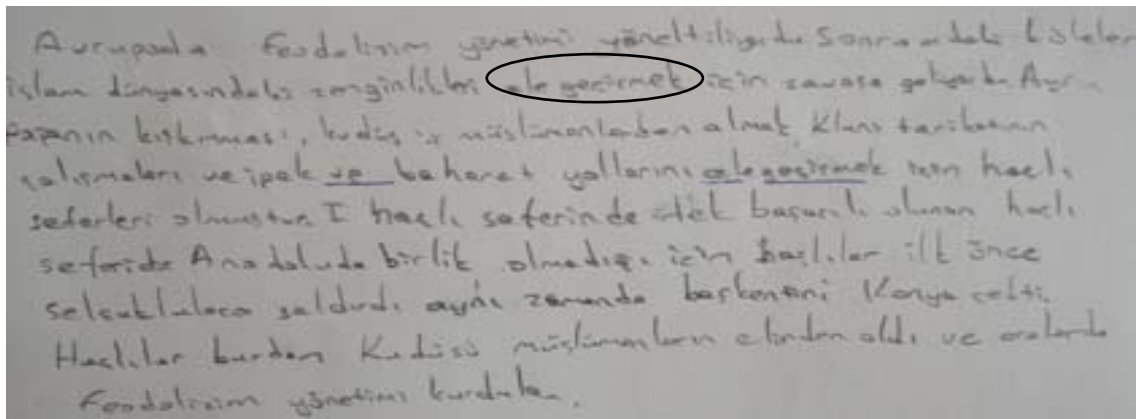 Avrupada Feodalizim yönetimi yöneltiliyordu Sonra
islam dünyasındaki zenginlikleri ele geçirmek için savaşa geliyordu
papanın kışkırması, kudüs ü müslümanlardan almak, Kluni tarikatının
çalışmaları ve ipek ve baharat yollarını ele geçirmek için haçlı
seferleri olmuştur. I haçlı seferinde tek başarılı olunan haçlı
seferidir Anadoluda birlik olmadığı için haçlılar ilk önce
selçuklulara saldırdı aynı zamanda başkenteni Konya
Haçlılar burdan Kudüsü müslümanların elinden aldı ve oralarda
Feodalizim yönetimi kurdular.